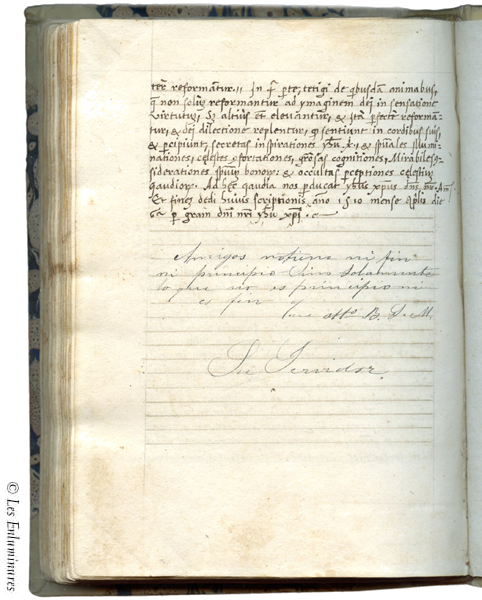 ter reformātur.// In q̄ pte, tetigi de qbusdā animabus,
q non solū reformantur ad ymaginem dei in sensatione
virtutū, S; altiūs et elevantur, & ita pfecte reforma-
tur, & dei dilectione replentur, q sentiunt in cordibus suis,
& pcipiunt, secretas inspirationes yhu x. & spūales illumi-
nationes, celestes cōfortationes, grōsas cognitiones, Mirabiles cō-
siderationes spūum bonorū & occultas pceptiones celestiū
gaudiorū. Ad hec gaudia nos pducat yhus xpus dns nr. Am̄.
Et fines dedi huius scriptionis año 1510 mense Aplis die
6a p grām dnī nrī yhu xpi.
Amigos notiene ni fin
ni principio Sino Solamente
lo que no es principio ni
es fin y
atto B. S. M.
Su Servidor
© Les Enluminures